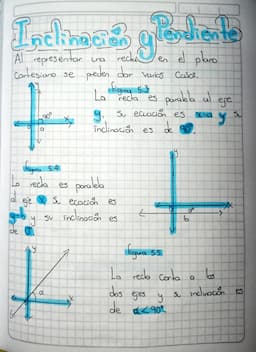 Inclinación y Pendiente
Al representar una recta en el plano
Cartesiano se pueden dar varios Casos.
Figura 5.3
La recta es paralela al eje
y. Su ecuación es x=a y su
inclinación es de 90°.
y
90°
x
Figura 5.4
La recta es paralela
al eje x su ecuación es
y=b y su inclinación es
de 0°.
y
x
0°
b
Figura 5.5
La recta corta a los
dos ejes y su inclinación es
de α<90°
y
α
x